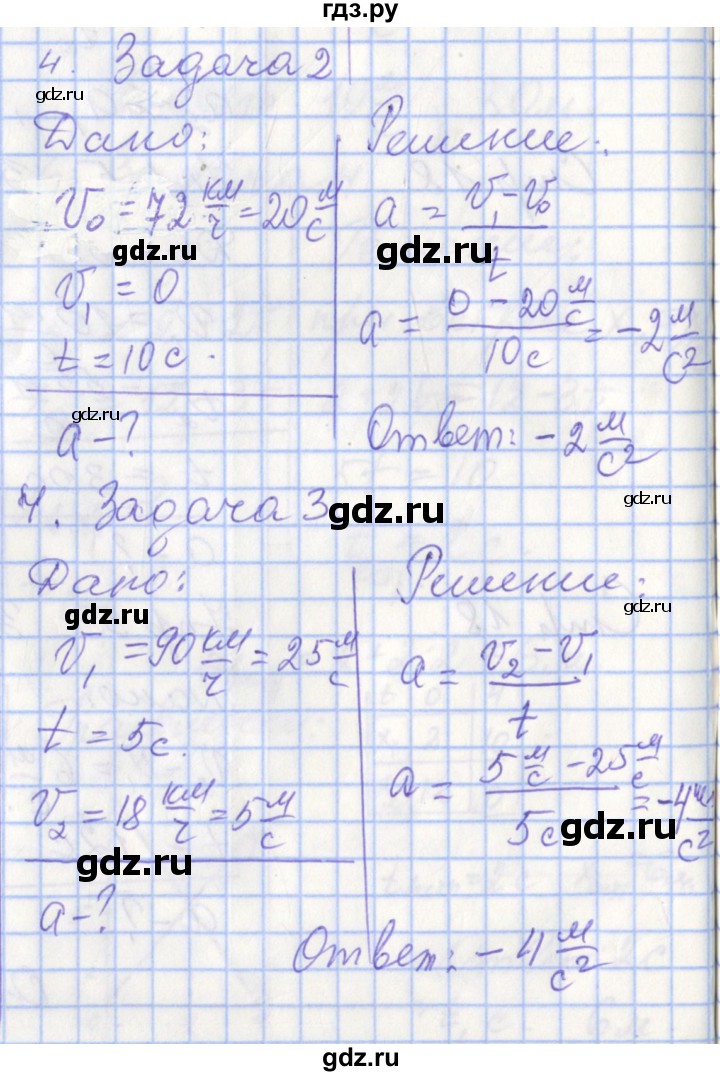 гдз.ру
4. Задача 2
gdz.ru
Дано:
V₀ = 72 км/ч = 20 м/с
gdz.ru
V₁ = 0
t = 10 с.
gdz.ru
a - ?
Решение:
a = (V₁ - V₀)/t
gdz.ru
a = (0 - 20 м/с)/10 с = -2 м/с²
Ответ: -2 м/с²
gdz.ru
4. Задача 3
gdz.ru
Дано:
gdz.ru
V₁ = 90 км/ч = 25 м/с
t = 5 с.
V₂ = 18 км/ч = 5 м/с
gdz.ru
a - ?
Решение:
gdz.ru
a = (V₂ - V₁)/t
a = (5 м/с - 25 м/с)/5 с = -4 м/с²
gdz.ru
Ответ: -4 м/с²
gdz.ru